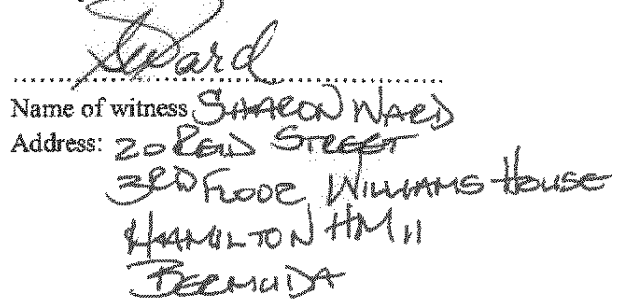 SWard
Name of witness SHARON WARD
Address: 20 REID STREET
3RD FLOOR WILLIAMS HOUSE
HAMILTON HM 11
BERMUDA